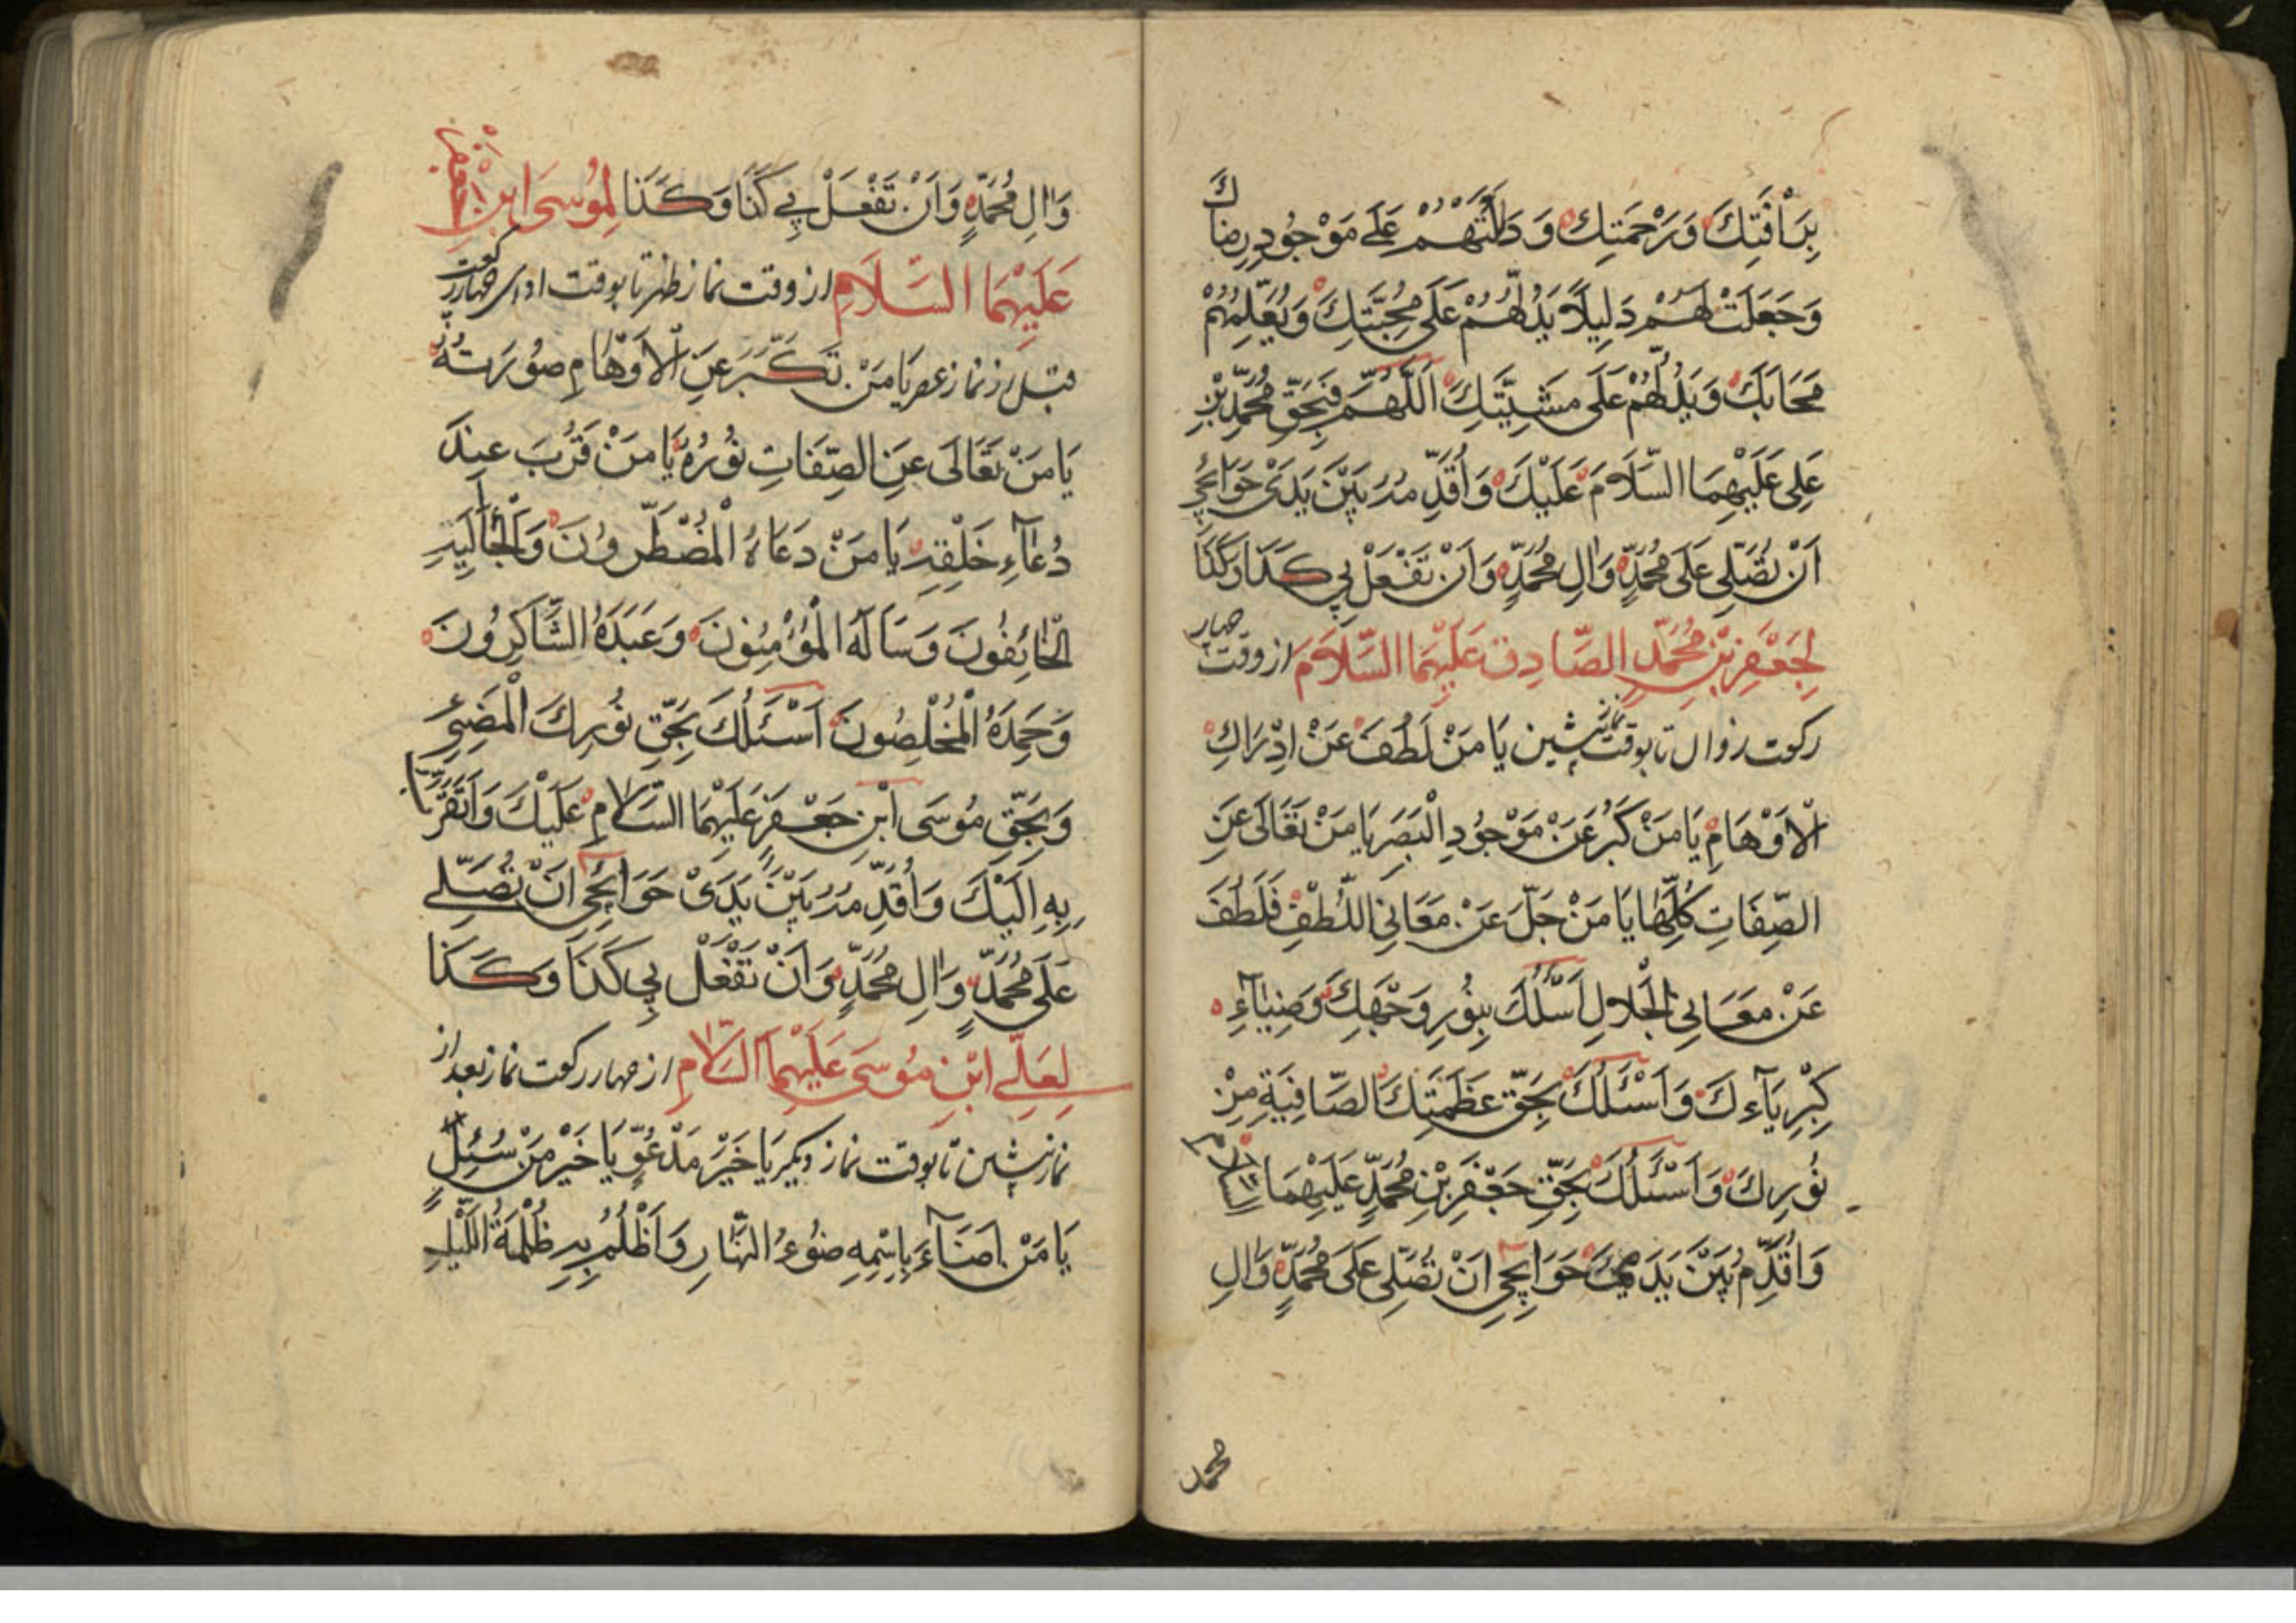 بِرَأْفَتِكَ وَرَحْمَتِكَ وَدَلَلْتَهُمْ عَلَى مَوْجُودِ رِضَاكَ
وَجَعَلْتَ لَهُمْ دَلِيلًا يَدُلُّهُمْ عَلَى مَحَبَّتِكَ وَيُعَلِّمُهُمْ
مَحَابَّكَ وَيَدُلُّهُمْ عَلَى مَشِيَّتِكَ اَللّٰهُمَّ فَبِحَقِّ مُحَمَّدِ بْنِ
عَلِى عَلَيْهِمَا السَّلَامَ عَلَيْكَ وَاُقَدِّمُهُ بَيْنَ يَدَىْ حَوَائِجِى
اَنْ تُصَلِّى عَلَى مُحَمَّدٍ وَاٰلِ مُحَمَّدٍ وَاَنْ تَفْعَلْ بِى كَذَا وَكَذَا
لِجَعْفَرِ بْنِ مُحَمَّدٍ الصَّادِقِ عَلَيْهِمَا السَّلَامَ از وقت چهار
ركعت زوال تا بوقت نماز پشين يَا مَنْ لَطُفَ عَنْ اِدْرَاكِ
الْاَوْهَامِ يَا مَنْ كَبُرَ عَنْ مَوْجُودِ الْبَصَرِ يَا مَنْ تَعَالَى عَنِ
الصِّفَاتِ كُلِّهَا يَا مَنْ جَلَّ عَنْ مَعَانِى اللُّطْفِ فَلَطُفَ
عَنْ مَعَانِى الْجَلَالِ اَسْئَلُكَ بِنُورِ وَجْهِكَ وَضِيَآءِ
كِبْرِيَآءِكَ وَاَسْئَلُكَ بِحَقِّ عَظَمَتِكَ الصَّافِيَةِ مِنْ
نُورِكَ وَاَسْئَلُكَ بِحَقِّ جَعْفَرِ بْنِ مُحَمَّدٍ عَلَيْهِمَا السلام
وَاُقَدِّمُ بَيْنَ يَدَىْ حَوَائِجِى اَنْ تُصَلِّى عَلَى مُحَمَّدٍ وَاٰلِ
محمد
وَاٰلِ مُحَمَّدٍ وَاَنْ تَفْعَلْ بِى كَذَا وَكَذَا لِمُوسَى ابْنِ
عَلَيْهِمَا السَّلَامِ از وقت نماز ظهر تا بوقت اداى چهار ركعت
قبل از نماز عصر يَا مَنْ تَكَبَّرَ عَنِ الْاَوْهَامِ صُورَتُهُ
يَا مَنْ تَعَالَى عَنِ الصِّفَاتِ نُورُهُ يَا مَنْ قَرُبَ عِندَ
دُعَآءِ خَلْقِهِ يَا مَنْ دَعَاهُ الْمُضْطَرُّونَ وَلَجَأَ اِلَيْهِ
الْخَائِفُونَ وَسَاَلَهُ الْمُؤْمِنُونَ وَعَبَدَهُ الشَّاكِرُونَ
وَحَمِدَهُ الْمُخْلِصُونَ اَسْئَلُكَ بِحَقِّ نُورِكَ الْمُضِىْءِ
وَبِحَقِّ مُوسَى ابْنِ جَعْفَرٍ عَلَيْهِمَا السَّلَامِ عَلَيْكَ وَاَتَقَرَّبُ
بِهِ اِلَيْكَ وَاُقَدِّمُهُ بَيْنَ يَدَىْ حَوَائِجِى اَنْ تُصَلِّى
عَلَى مُحَمَّدٍ وَاٰلِ مُحَمَّدٍ وَاَنْ تَفْعَلْ بِى كَذَا وَكَذَا
لِعَلِىِّ ابْنِ مُوسَى عَلَيْهِمَا السَّلَامِ از چهار ركعت نماز بعد از
نماز پشين تا بوقت نماز ديكر يَا خَيْرَ مَدْعُوٍّ يَا خَيْرَ مَنْ سُئِلَ
يَا مَنْ اَضَآءَ بِاسْمِهِ ضَوْءُ النَّهَارِ وَاَظْلَمَ بِهِ ظُلْمَةُ اللَّيْلِ